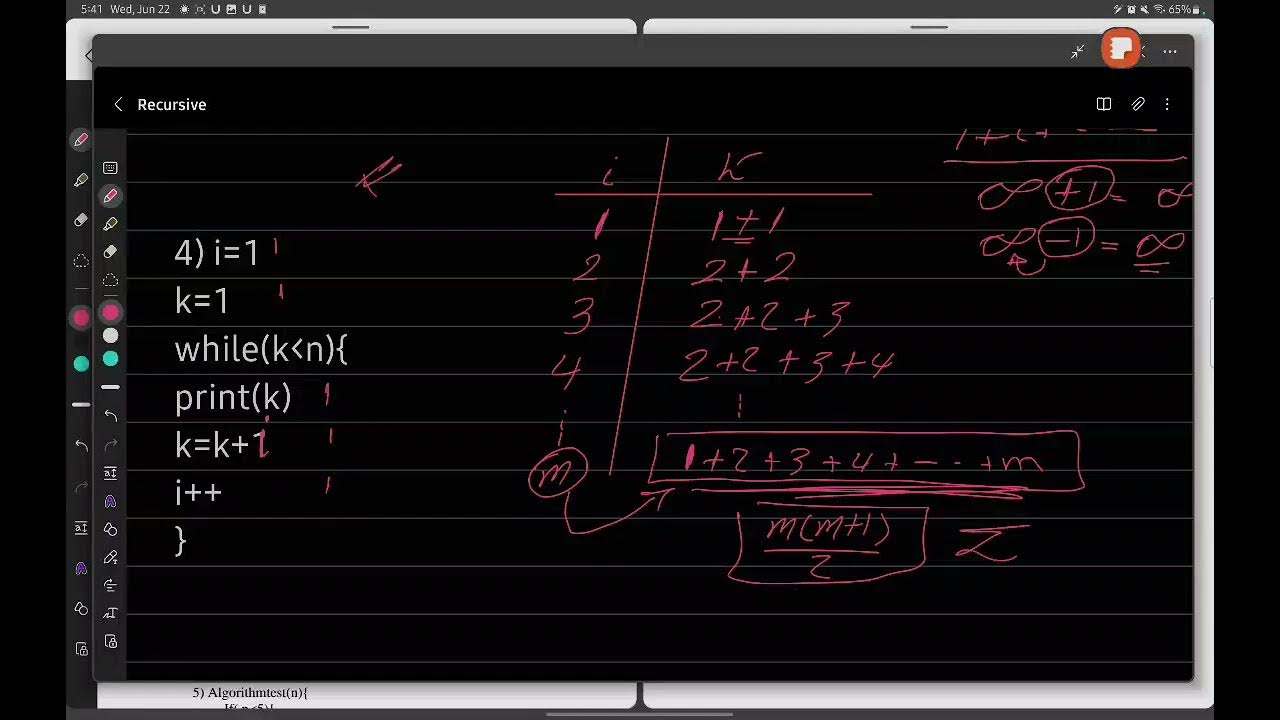 5:41 Wed, Jun 22
65%
Recursive
1+2+
∞ +1 = ∞
∞ -1 = ∞
i k
1 1+1
2 2+2
3 2+2+3
4 2+2+3+4
m 1+2+3+4+-..+m
m(m+1)
2
4) i=1 1
k=1 1
while(k<n){
print(k) 1
k=k+i 1
i++ 1
}
5) Algorithmtest(n){
If( n<5){